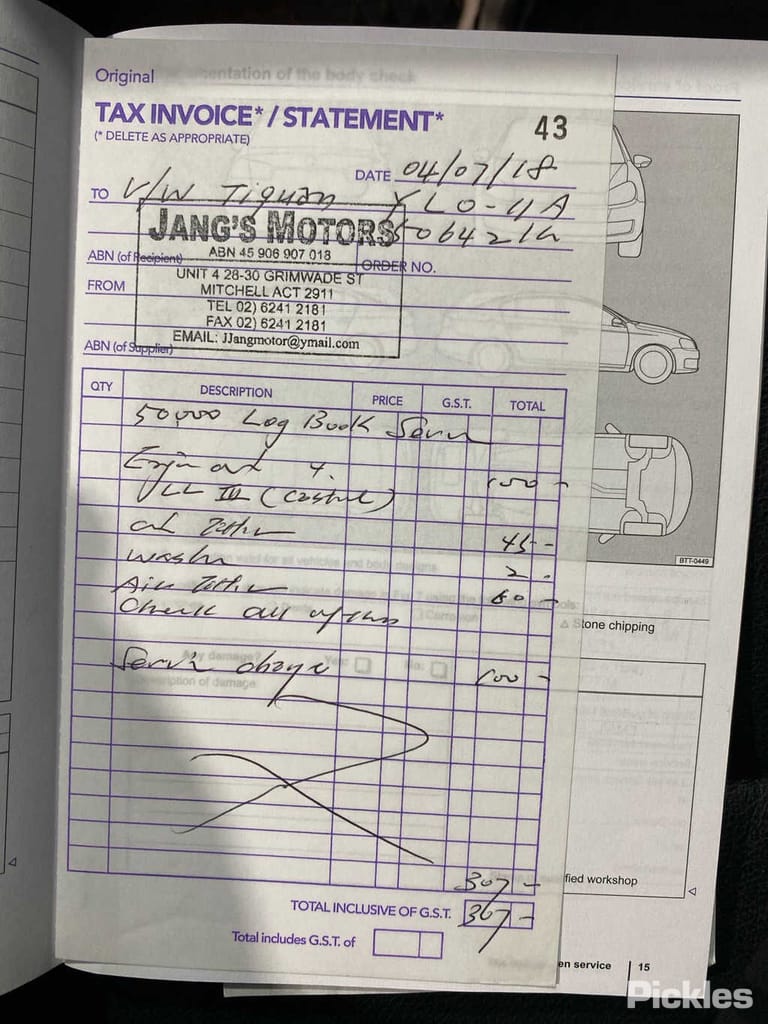 Original
TAX INVOICE* / STATEMENT*
(* DELETE AS APPROPRIATE)
43
DATE 04/07/18
TO V/W Tiguan YLO-41A
JANG'S MOTORS
ABN 45 906 907 018
ABN (of Recipient)
ORDER NO.
UNIT 4 28-30 GRIMWADE ST
FROM
MITCHELL ACT 2911
TEL 02) 6241 2181
FAX 02) 6241 2181
EMAIL: JJangmotor@ymail.com
ABN (of Supplier)
QTY DESCRIPTION PRICE G.S.T. TOTAL
50,000 Log Book Servi
Engin oil 4. 100 -
VLL III (Castrol)
oil filter 45 -
washer 2 -
Air filter 60 -
Check all
Servic charge 100 -
307 -
TOTAL INCLUSIVE OF G.S.T. 307 -
Total includes G.S.T. of
mentation of the body check
Any damage? Yes: No:
ription of damage
BTT-0449
Stone chipping
fied workshop
en service 15
Pickles